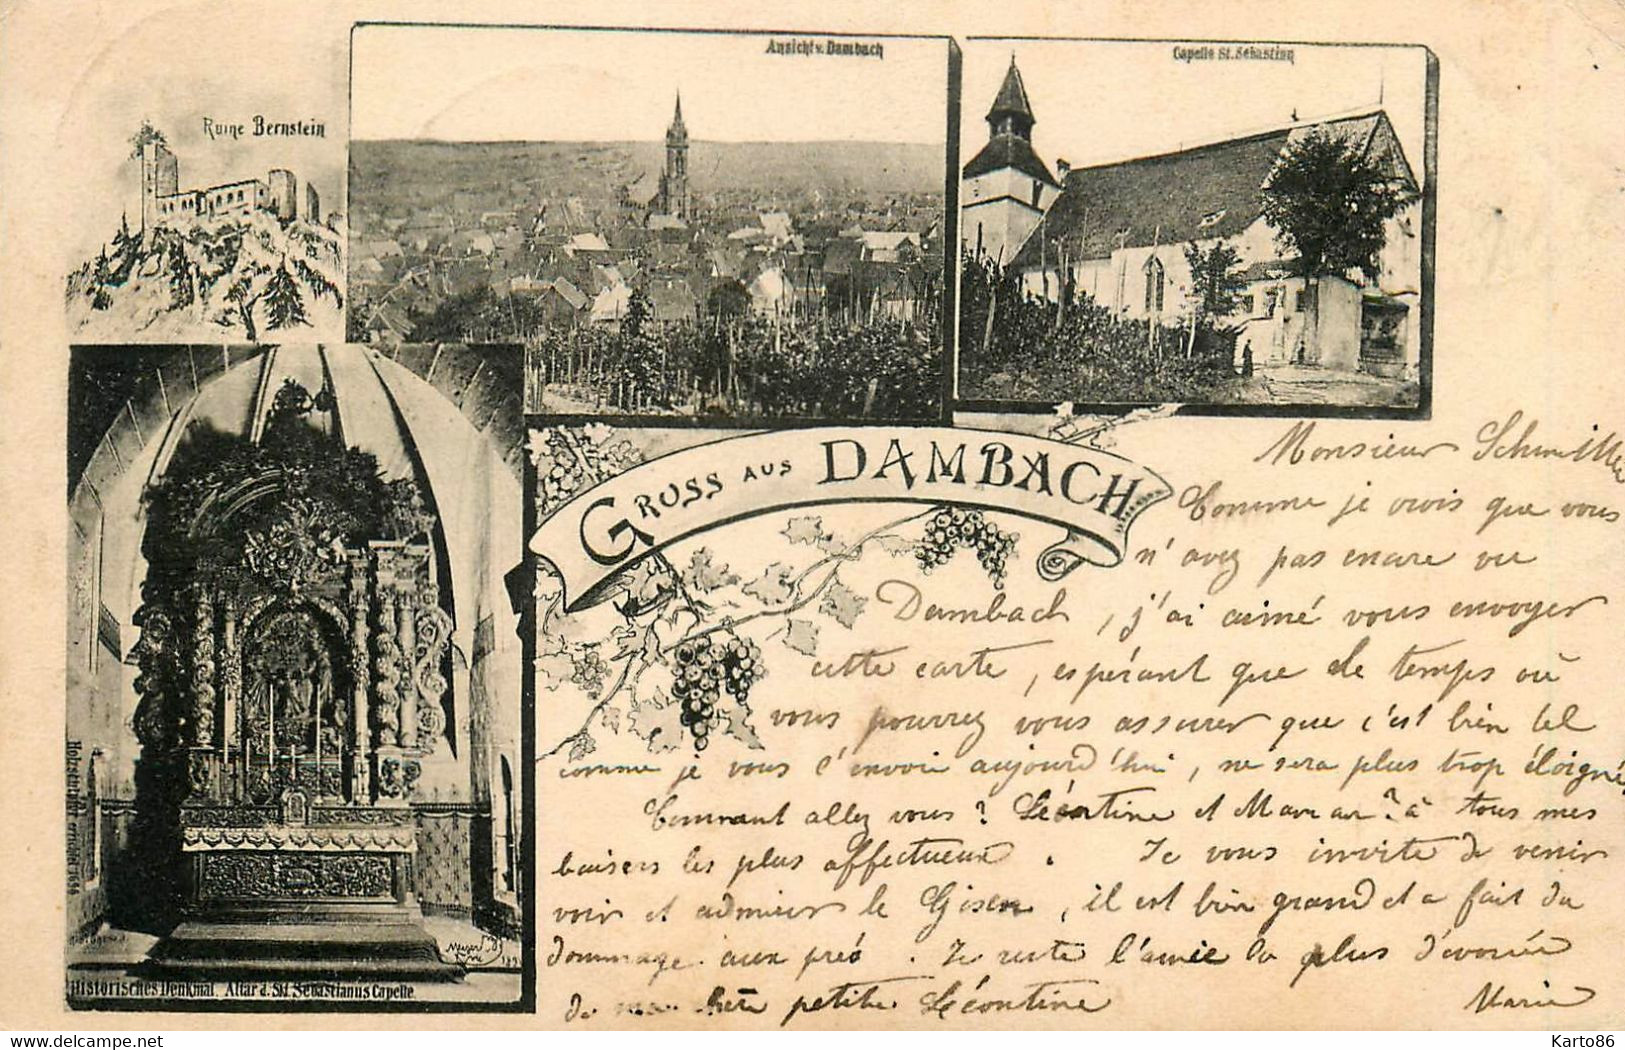 Ruine Bernstein
Ansicht v. Dambach
Capelle St. Sebastian
GRUSS AUS DAMBACH
Historisches Denkmal. Altar d. Skt. Sebastianus Capelle
Monsieur
Comme je crois que vous
n'avez pas encore vu
Dambach, j'ai aimé vous envoyer
cette carte, espérant que le temps où
vous pourrez vous assurer que c'est bien tel
comme je vous l'envoie aujourd'hui, ne sera plus trop éloigné,
Comment allez vous? Léontine et à tous mes
baisers les plus affectueux. Je vous invite de venir
voir et admirer le Gisen, il est bien grand et a fait du
dommage aux prés. Je reste l'amie la plus dévouée
de petite Léontine Marie
www.delcampe.net
Karto86